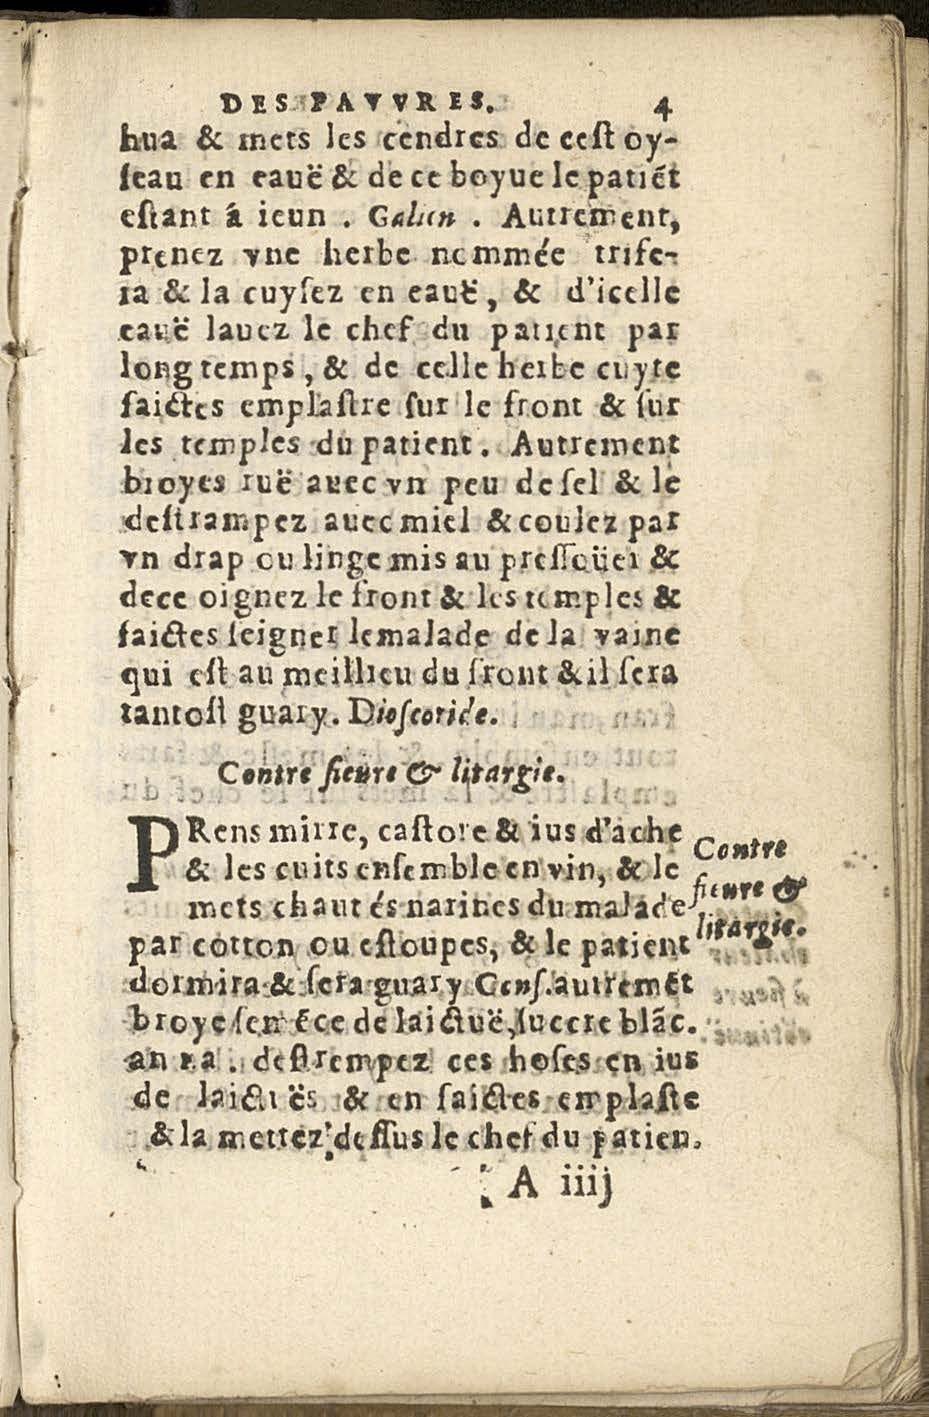 DES PAVVRES. 4
hua & mets les cendres de cest oy-
seau en eauë & de ce boyue le patiẽt
estant á ieun . Galien . Autrement,
prenez vne herbe nommée trife-
ra & la cuysez en eauë, & d'icelle
eauë lauez le chef du patient par
long temps, & de celle herbe cuyte
faictes emplastre sur le front & sur
les temples du patient. Autrement
broyes ruë auec vn peu de sel & le
destrampez auec miel & coulez par
vn drap ou linge mis au pressoüer &
dece oignez le front & les temples &
faictes seigner lemalade de la vaine
qui est au meillieu du front & il sera
tantost guary. Dioscoride.
Contre fieure & litargie.
PRens mirre, castore & ius d'ache
& les cuits ensemble en vin, & le
mets chaut és narines du malade
par cotton ou estoupes, & le patient
dormira & sera guary Cens. autremẽt
broye semẽce de laictuë, succre blãc.
an . destrempez ces hoses en ius
de laictuës & en faictes emplaste
& la mettez dessus le chef du patien.
A iiij
Contre
fieure &
litargie.